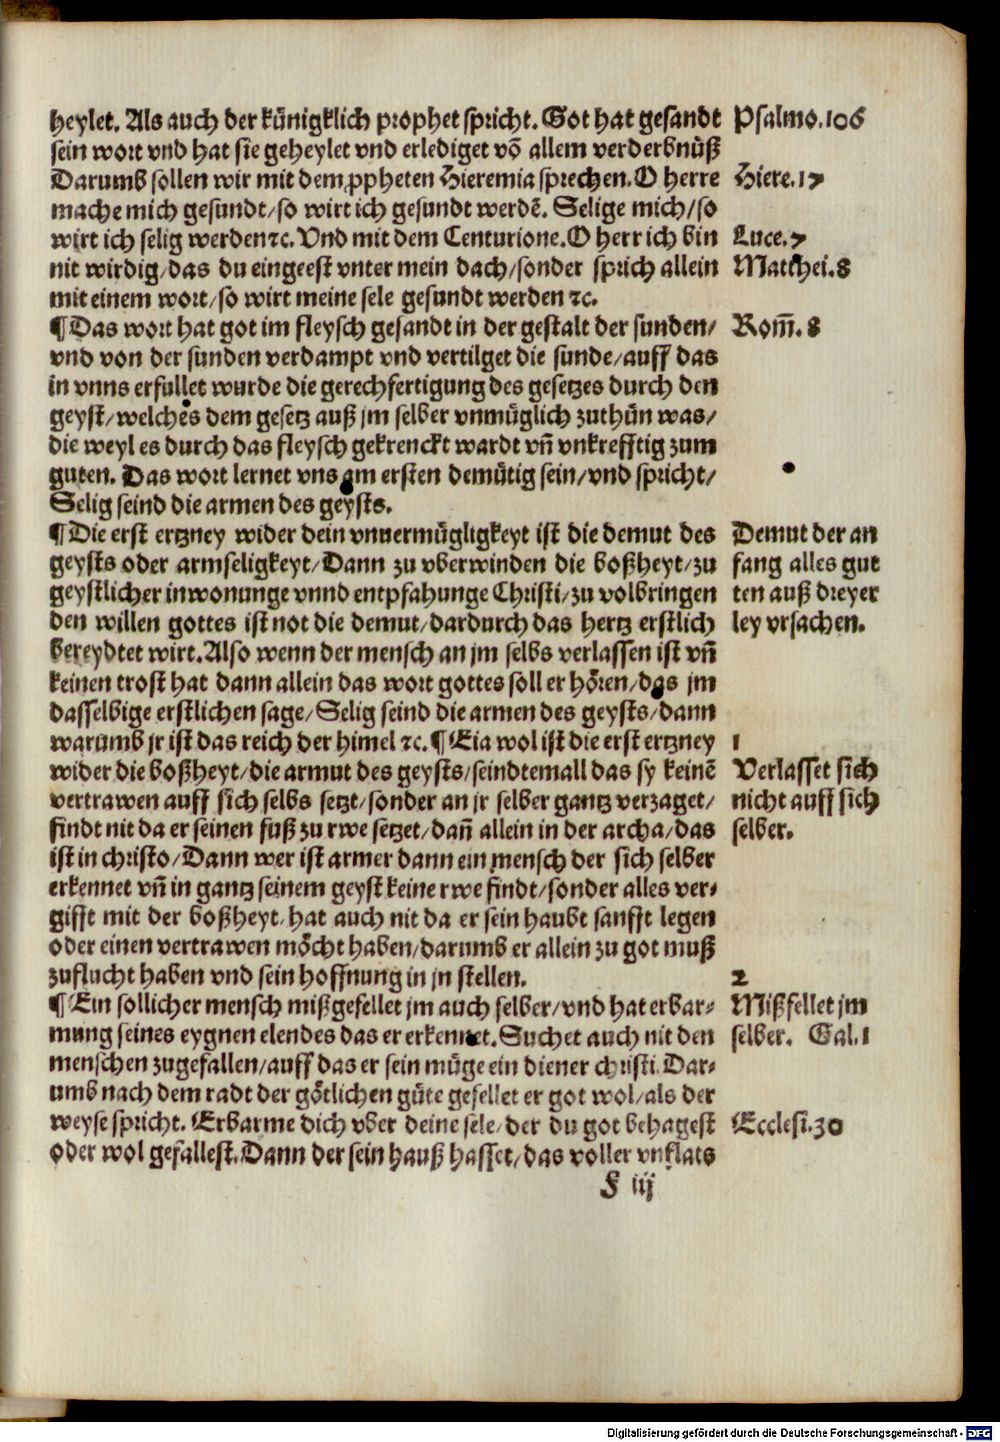 heylet. Als auch der künigklich prophet spricht. Got hat gesandt
sein wort vnd hat sie geheylet vnd erlediget võ allem verderbnüß
Darumb sollen wir mit dem ꝓpheten Hieremia sprechen. O herre
mache mich gesundt/so wirt ich gesundt werdẽ. Selige mich/so
wirt ich selig werden ⁊c. Vnd mit dem Centurione. O herr ich bin
nit wirdig/das du eingeest vnter mein dach/sonder sprich allein
mit einem wort/so wirt meine sele gesundt werden ⁊c.
¶ Das wort hat got im fleysch gesandt in der gestalt der sunden/
vnd von der sunden verdampt vnd vertilget die sunde/auff das
in vnns erfullet wurde die gerechfertigung des gesetzes durch den
geyst/welches dem gesetz auß jm selber vnmüglich zuthün was/
die weyl es durch das fleysch gekrenckt wardt vñ vnkrefftig zum
guten. Das wort lernet vns am ersten demütig sein/vnd spricht/
Selig seind die armen des geysts.
¶ Die erst ertzney wider dein vnuermügligkeyt ist die demut des
geysts oder armseligkeyt/Dann zu vberwinden die boßheyt/zu
geystlicher inwonunge vnnd entpfahunge Christi/zu volbringen
den willen gottes ist not die demut/dardurch das hertz erstlich
bereydtet wirt. Also wenn der mensch an jm selbs verlassen ist vñ
keinen trost hat dann allein das wort gottes soll er hören/das jm
dasselbige erstlichen sage/Selig seind die armen des geysts/dann
warumb jr ist das reich der himel ⁊c. ¶ Eia wol ist die erst ertzney
wider die boßheyt/die armut des geysts/seindtemall das sy keinẽ
vertrawen auff sich selbs setzt/sonder an jr selber gantz verzaget/
findt nit da er seinen fuß zu rwe setzet/dañ allein in der archa/das
ist in christo/Dann wer ist armer dann ein mensch der sich selber
erkennet vñ in gantz seinem geyst keine rwe findt/sonder alles ver⸗
gifft mit der boßheyt/hat auch nit da er sein haubt sanfft legen
oder einen vertrawen möcht haben/darumb er allein zu got muß
zuflucht haben vnd sein hoffnung in jn stellen.
¶ Ein sollicher mensch mißgefellet jm auch selber/vnd hat erbar⸗
mung seines eygnen elendes das er erkennet. Suchet auch nit den
menschen zugefallen/auff das er sein müge ein diener christi. Dar⸗
umb nach dem radt der götlichen güte gefellet er got wol/als der
weyse spricht. Erbarme dich vber deine sele/der du got behagest
oder wol gefallest. Dann der sein hauß hasset/das voller vnflats
F iij
Psalmo. 106
Hiere. 17
Luce. 7
Matthei. 8
Rom̃. 8
Demut der an
fang alles gut
ten auß dreyer
ley vrsachen.
1
Verlasset sich
nicht auff sich
selber.
2
Mißfellet jm
selber. Gal. 1
Ecclesi. 30
Digitalisierung gefördert durch die Deutsche Forschungsgemeinschaft - DFG